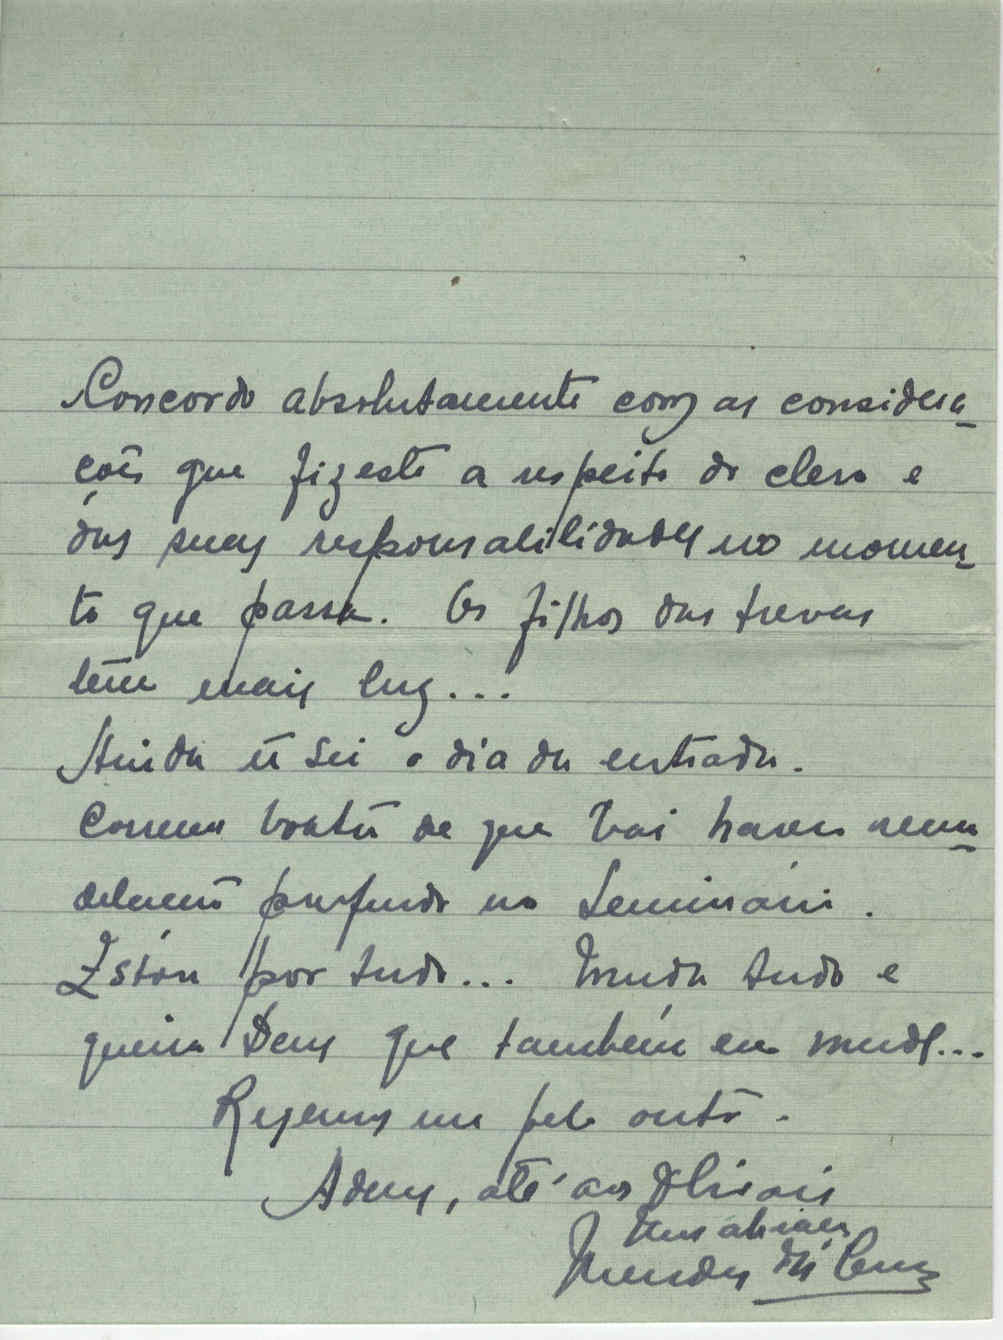 Concordo absolutamente com as considera-
ções que fizeste a respeito do clero e
das suas responsabilidades no momen-
to que passa. Os filhos das trevas
têm mais luz...
Ainda ñ sei o dia da entrada.
Correm boatos de que vai haver remo-
delação profunda no Seminário.
Estou por tudo... Muda tudo e
queira Deus que também eu mude...
Rezemos um pelo outro.
Adeus, até aos
Mendes